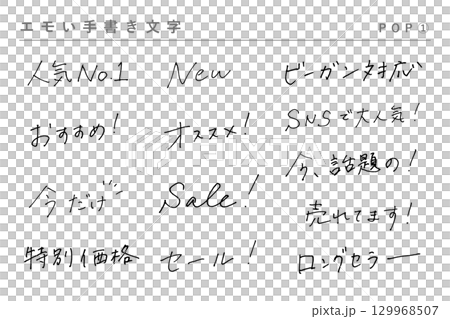 エモい手書き文字 POP①
人気No.1
おすすめ!
今だけ
特別価格
New
オススメ!
Sale!
セール!
ビーガン対応
SNSで大人気!
今、話題の!
売れてます!
ロングセラー
129968507